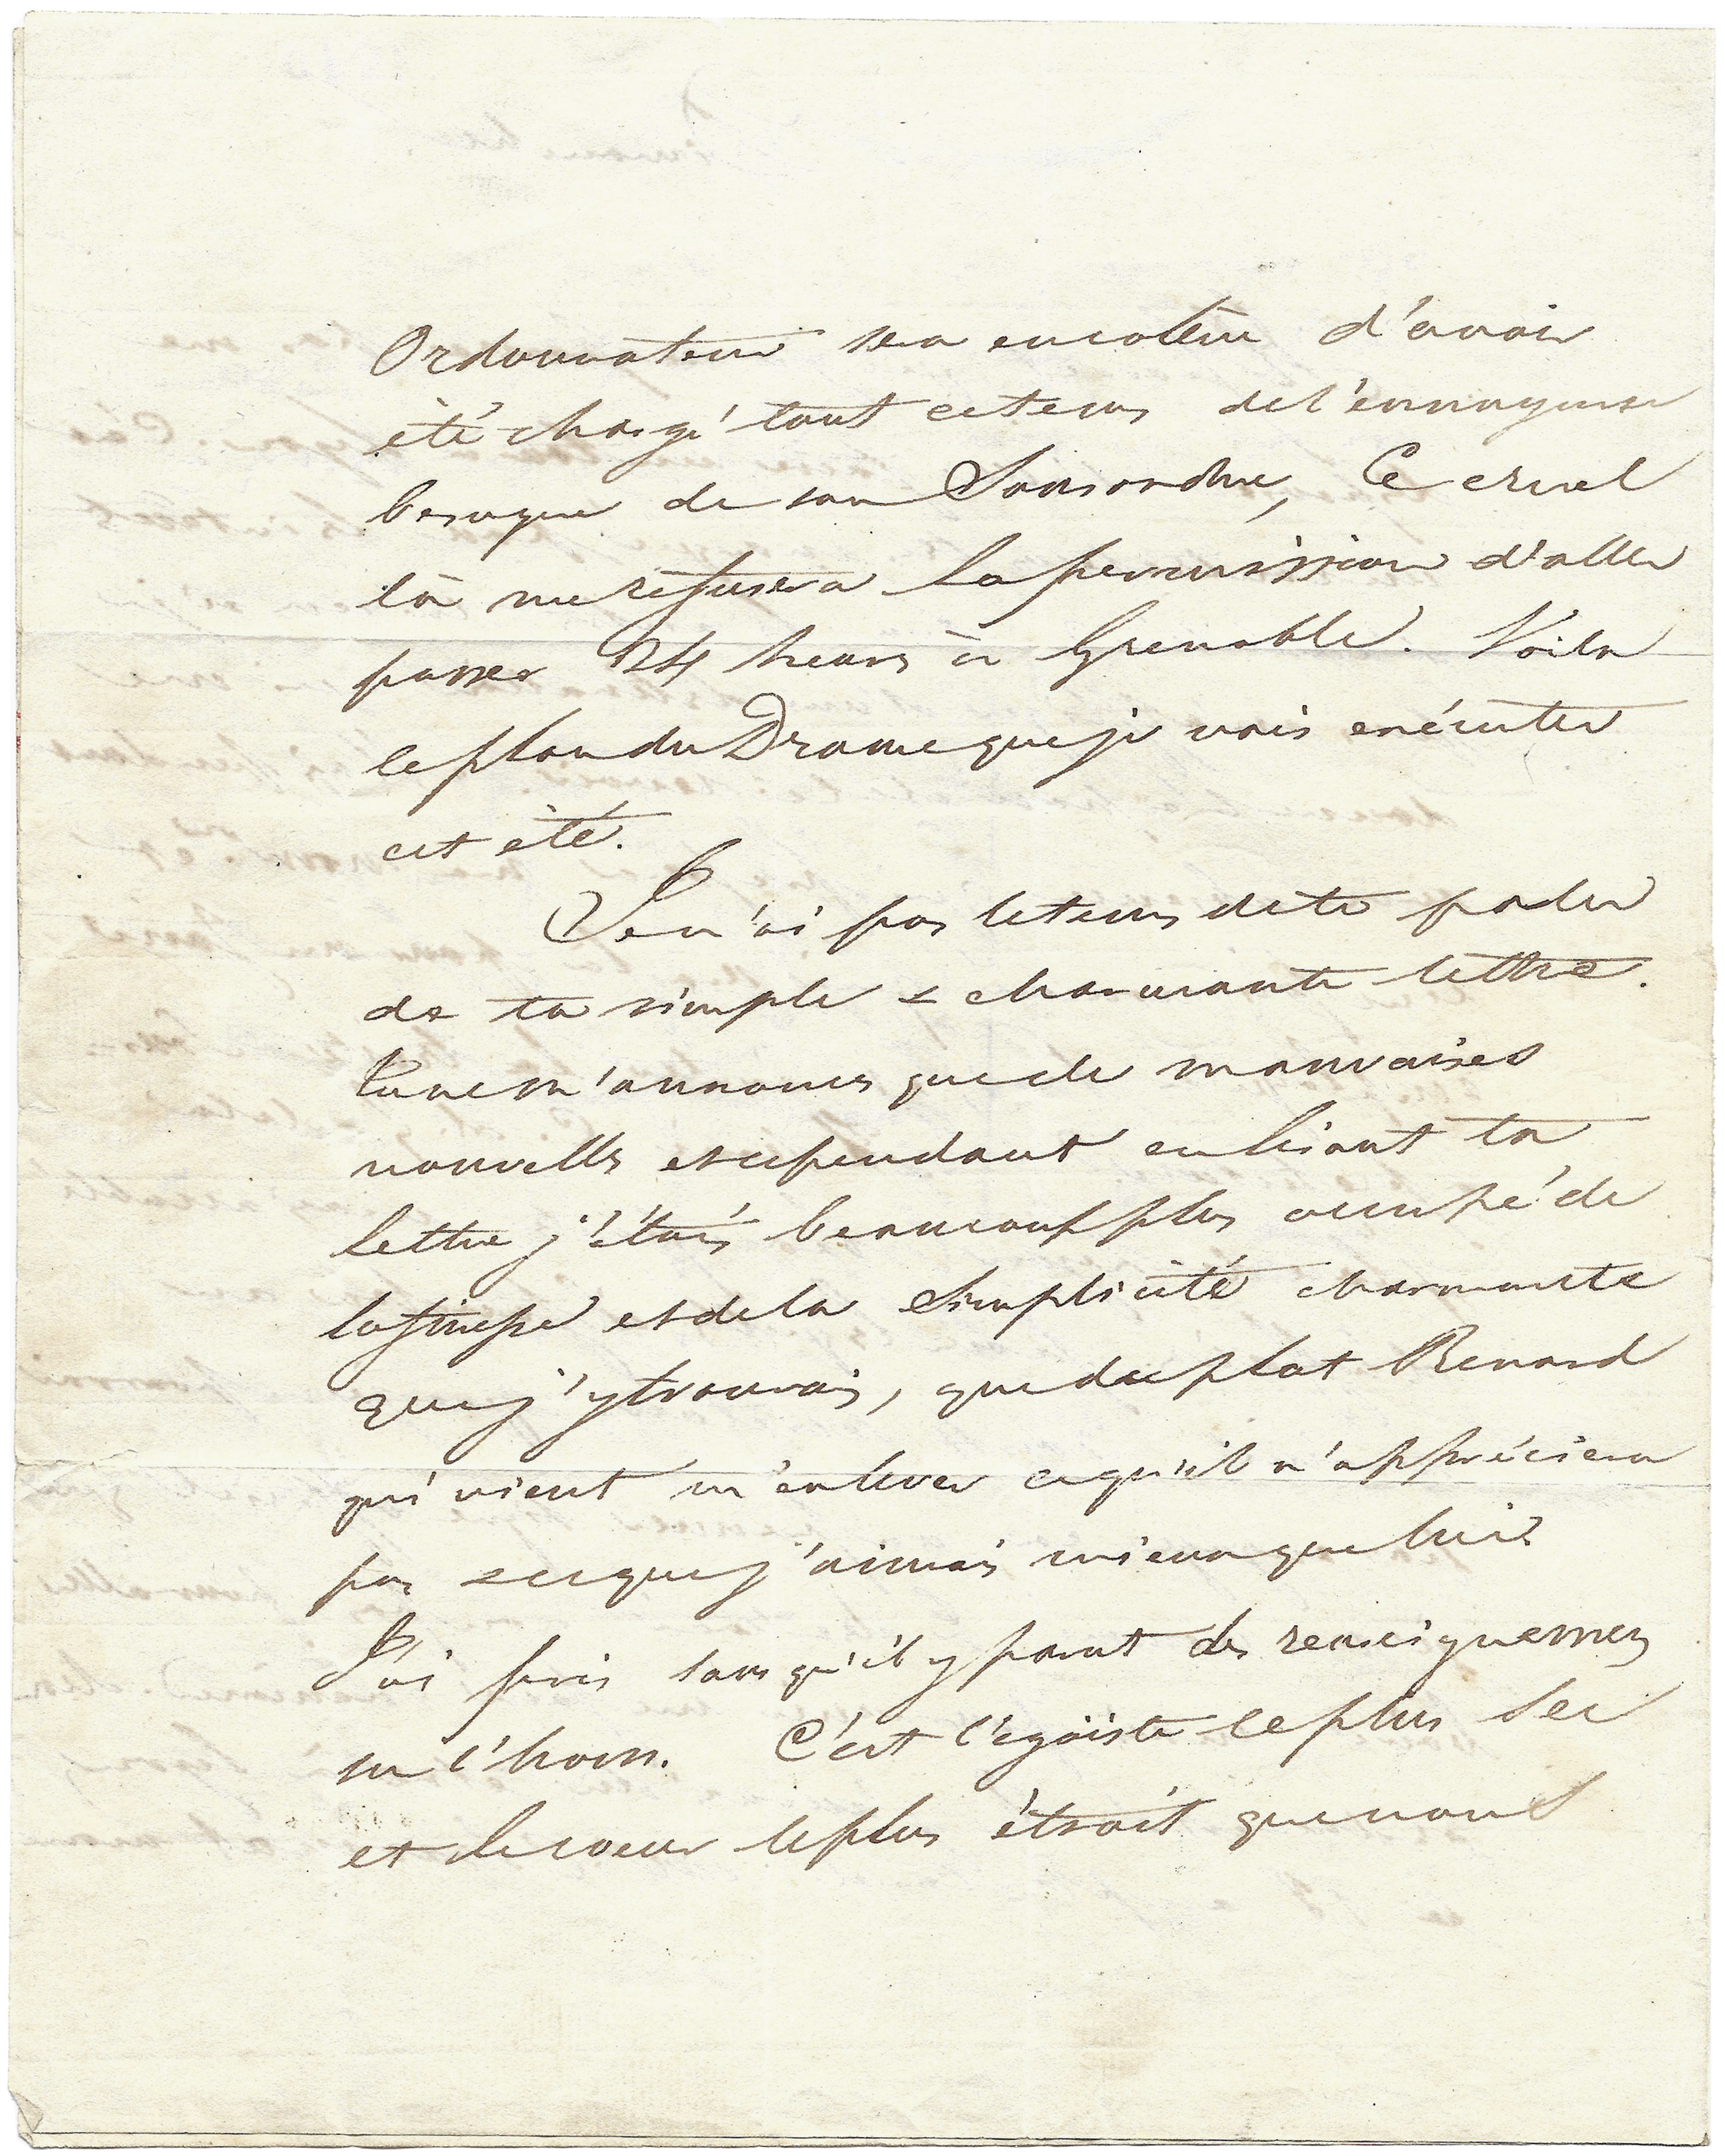 Ordonnateur sera en colère d'avoir
été chargé tout ce tems de l'ennuyeuse
besogne de son Sousordre, Ce cruel
là me refusera la permission d'aller
passer 24 heures à Grenoble. Voila
le plan du Drame que je vais exécuter
cet été.
Je n'ai pas le tems de te parler
de ta simple & charmante lettre.
Tu ne m'annonces que de mauvaises
nouvelles et cependant en lisant ta
lettre j'étais beaucoup plus occupé de
la finesse et de la simplicité charmante
que j'y trouvais, que du plat Renard
qui vient m'enlever ce qu'il n'appréciera
pas & ce que j'aimais mieux que lui.
J'ai pris sans qu'il y parut des renseignemens
sur l'hom. C'est l'egoïste le plus sec
et le coeur le plus étroit que nous